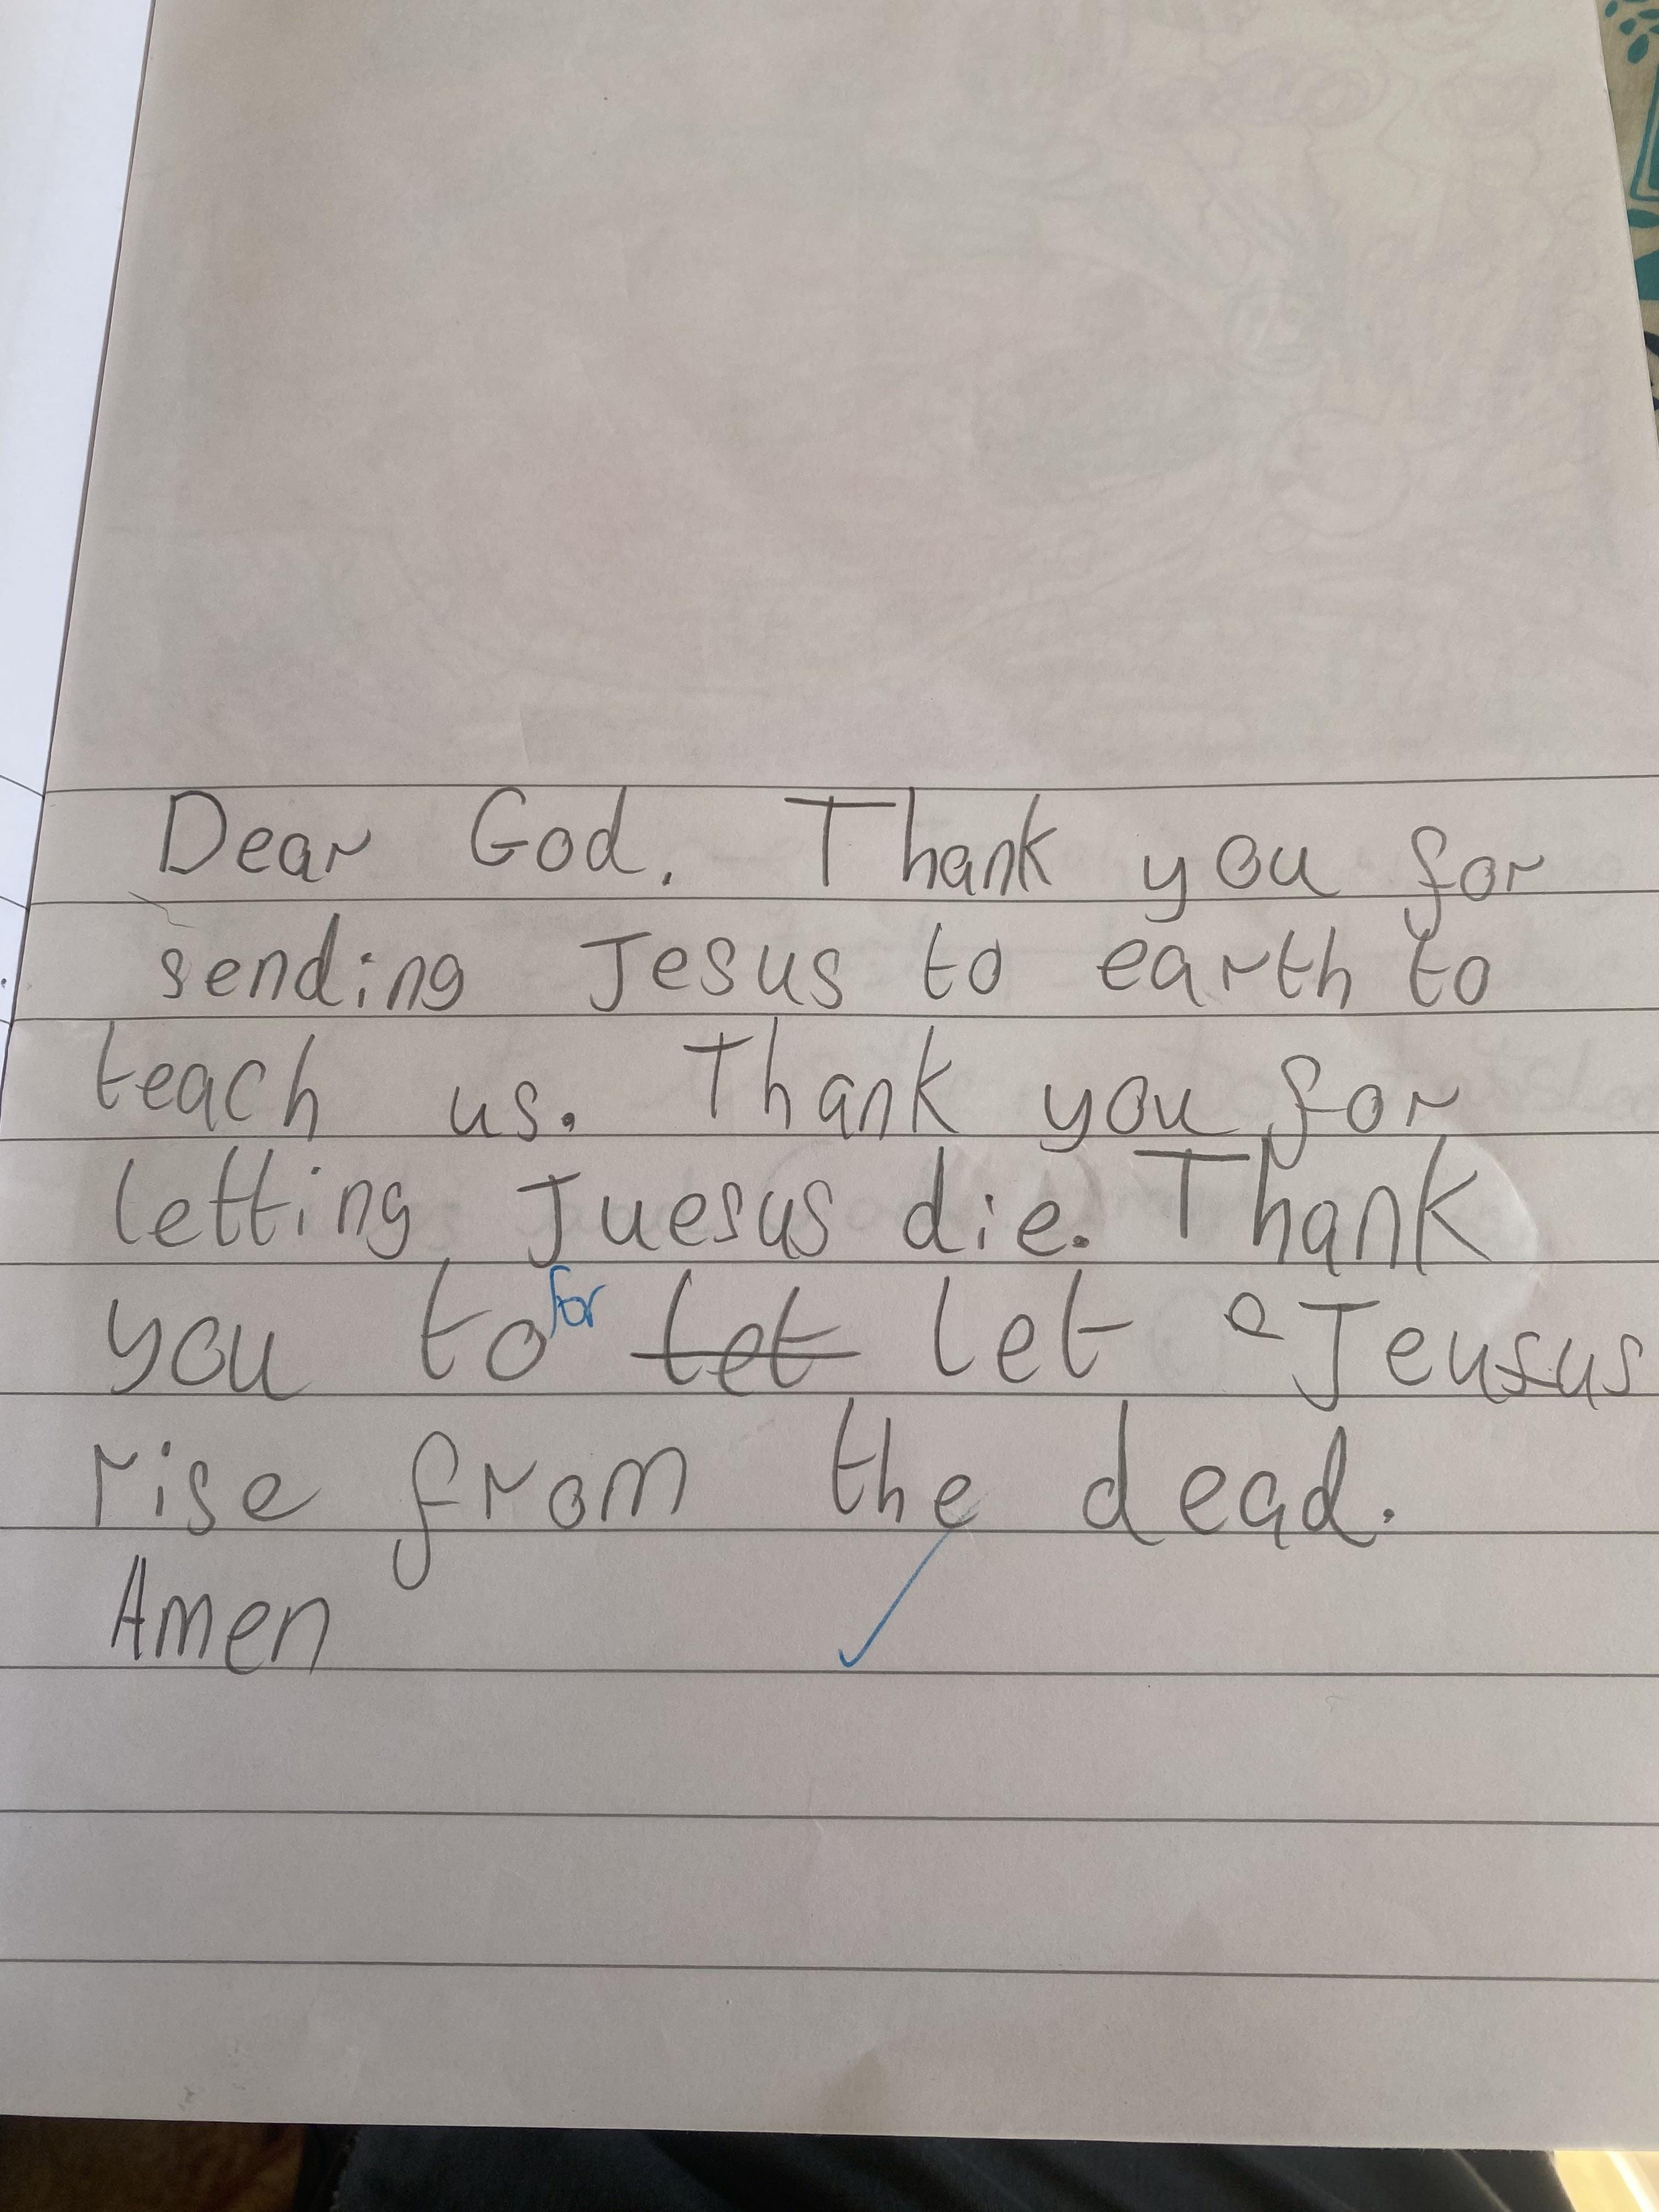 Dear God. Thank you for
sending Jesus to earth to
teach us. Thank you for
letting Juesus die. Thank
you to for let let Jeusus
rise from the dead.
Amen